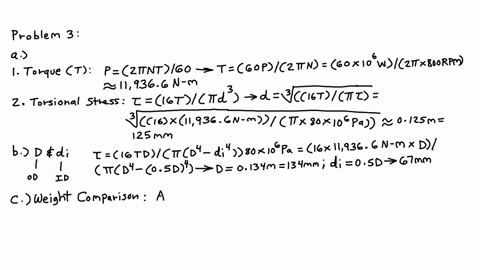 Problem 3:
a.)
1. Torque (T): P=(2πNT)/60 → T=(60P)/(2πN)=(60×10⁶W)/(2π×800RPM)
≈ 11,936.6 N-m
2. Torsional Stress: τ=(16T)/(πd³) → d=∛((16T)/(πτ)=
∛((16)×(11,936.6N-m))/(π×80×10⁶Pa)) ≈ 0.125m=
125mm
b.) D & di τ=(16TD)/(π(D⁴-di⁴))80×10⁶Pa=(16×11,936.6 N-m×D)/
OD ID (π(D⁴-(0.5D)⁴) → D=0.134m=134mm; di=0.5D→67mm
C.) Weight Comparison: A